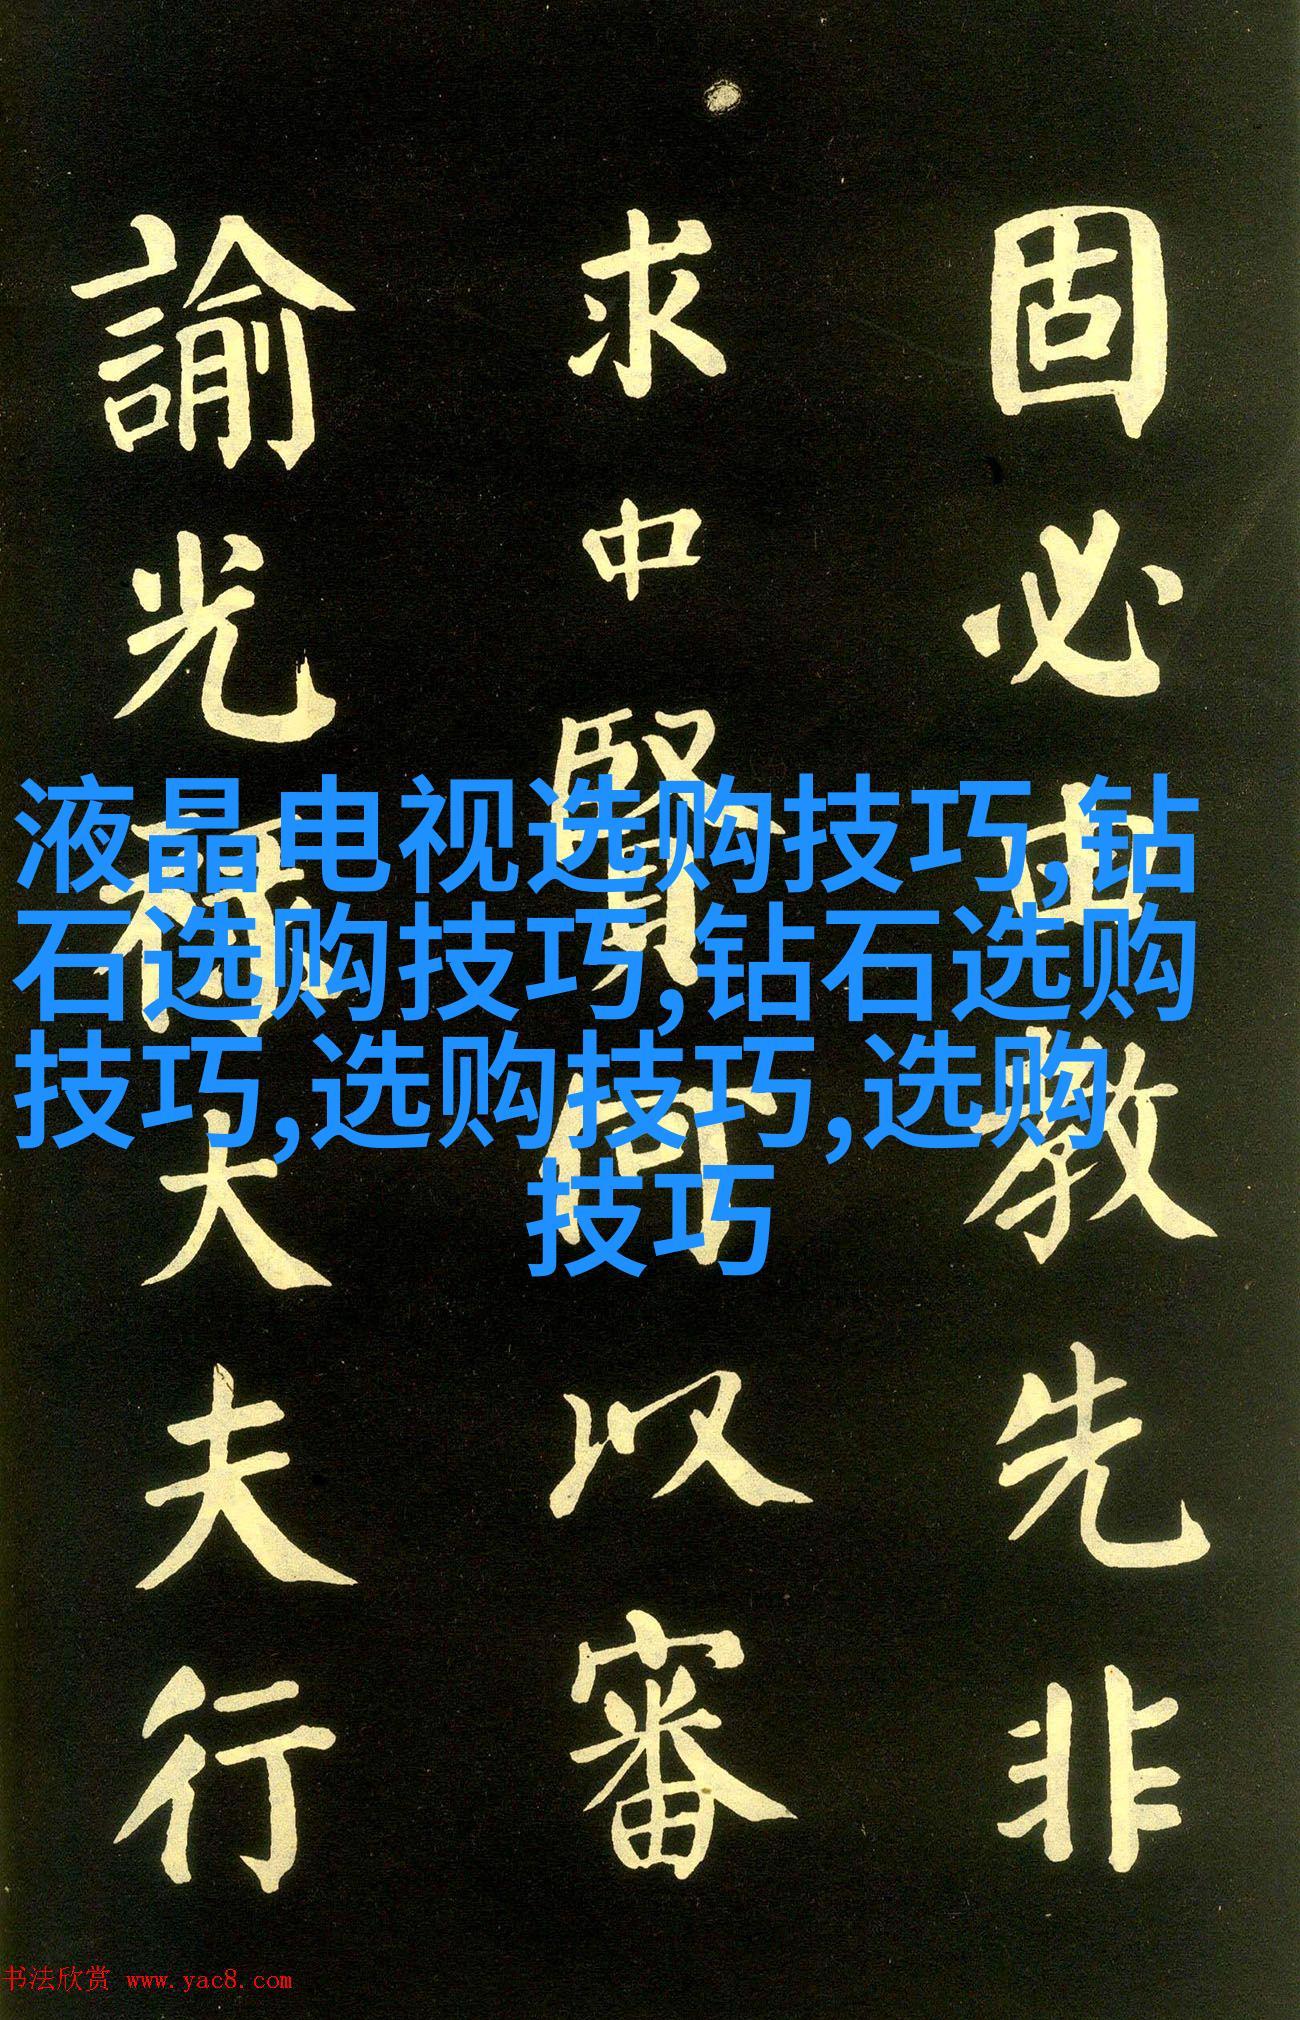 固必由教先非
求中賢何以審
諭光祿大夫行
液晶电视选购技巧,钻
石选购技巧,钻石选购
技巧,选购技巧,选购
技巧
书法欣赏 www.yac8.com